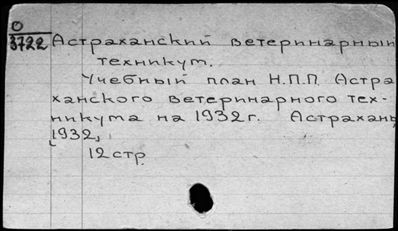 О
3722
Астраханский ветеринарный
техникум.
Учебный план Н.П.П. Астра
ханского ветеринарного тех-
никума на 1932г. Астрахань,
1932,
12стр